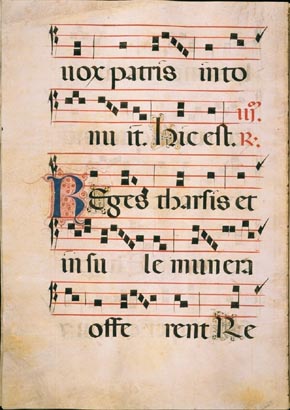 uox patris into
nu it. Hic est. R:
REges tharsis et
insu le munera
offe rent Re